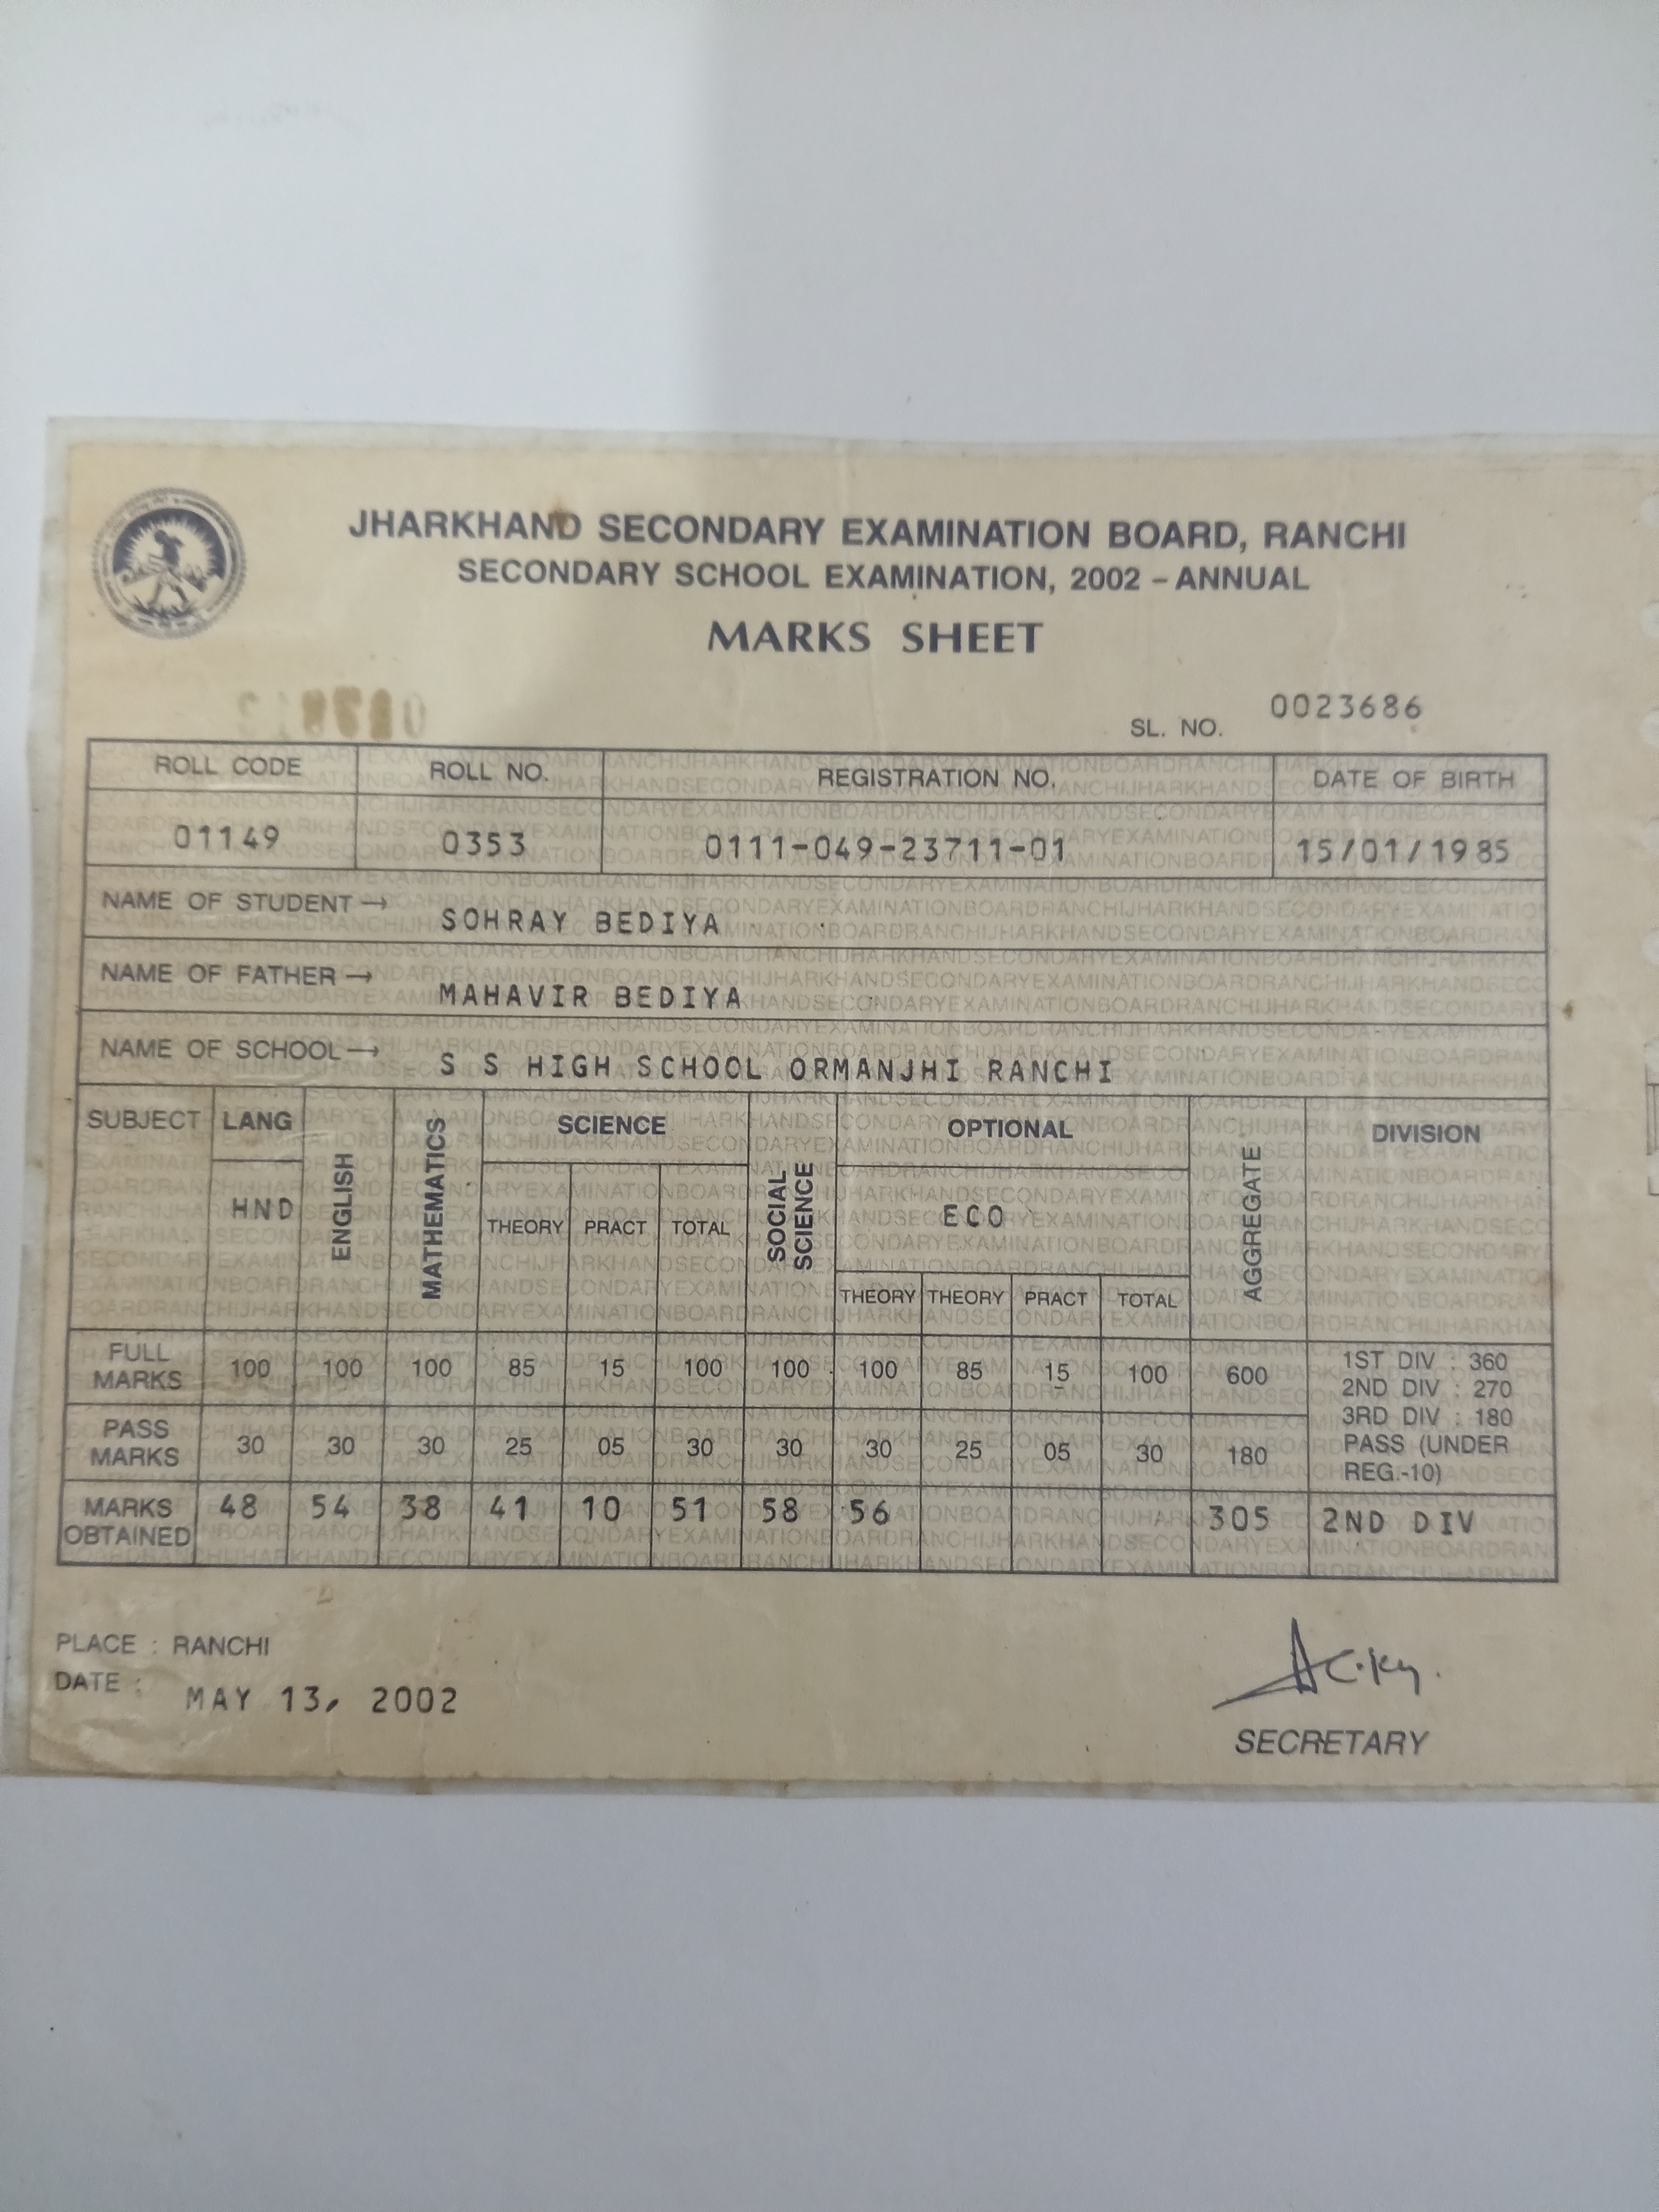 JHARKHAND SECONDARY EXAMINATION BOARD, RANCHI
SECONDARY SCHOOL EXAMINATION, 2002 – ANNUAL
MARKS SHEET
SL. NO. 0023686
ROLL CODE ROLL NO. REGISTRATION NO. DATE OF BIRTH
01149 0353 0111-049-23711-01 15/01/1985
NAME OF STUDENT → SOHRAY BEDIYA
NAME OF FATHER → MAHAVIR BEDIYA
NAME OF SCHOOL → S S HIGH SCHOOL ORMANJHI RANCHI
SUBJECT LANG ENGLISH MATHEMATICS SCIENCE SOCIAL SCIENCE OPTIONAL AGGREGATE DIVISION
HND THEORY PRACT TOTAL ECO
THEORY THEORY PRACT TOTAL
FULL MARKS 100 100 100 85 15 100 100 100 85 15 100 600
1ST DIV : 360
2ND DIV : 270
3RD DIV : 180
PASS (UNDER
REG.-10)
PASS MARKS 30 30 30 25 05 30 30 30 25 05 30 180
MARKS OBTAINED 48 54 38 41 10 51 58 56 305 2ND DIV
PLACE : RANCHI
DATE : MAY 13, 2002
SECRETARY